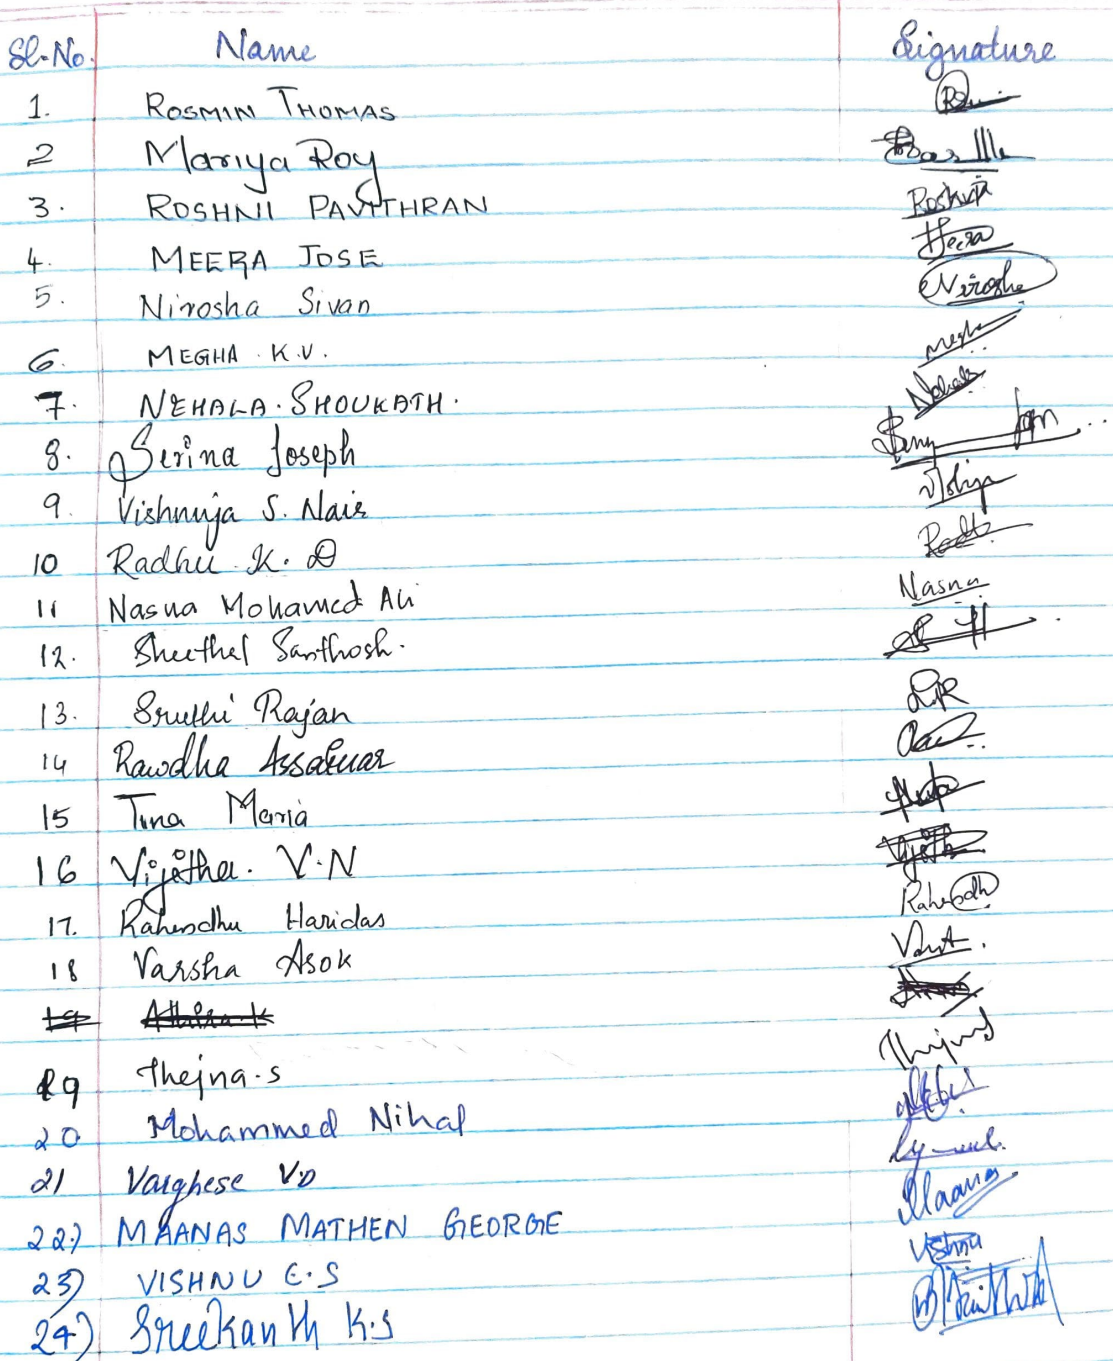 Sl.No. Name Signature
1. ROSMIN THOMAS
2 Mariya Roy
3. ROSHNI PAVITHRAN Roshni
4. MEERA JOSE Meera
5. Nirosha Sivan Nirosha
6. MEGHA K.V. Megha
7. NEHALA. SHOUKATH. Nehala
8. Serina Joseph
9. Vishnuja S. Nair
10 Radhu K. D
11 Nasna Mohamed Ali Nasna
12. Sheethel Santhosh.
13. Sruthi Rajan
14 Rawdha Assainar
15 Tina Maria
16 Vijetha. V.N Vijetha
17. Rahendhu Haridas
18 Varsha Asok
19 Athira.k
19 Thejna.s
20 Mohammed Nihal
21 Varghese V.D
22) MAANAS MATHEN GEORGE Maanas
23) VISHNU E.S Vishnu
24) Sreekanth K.S